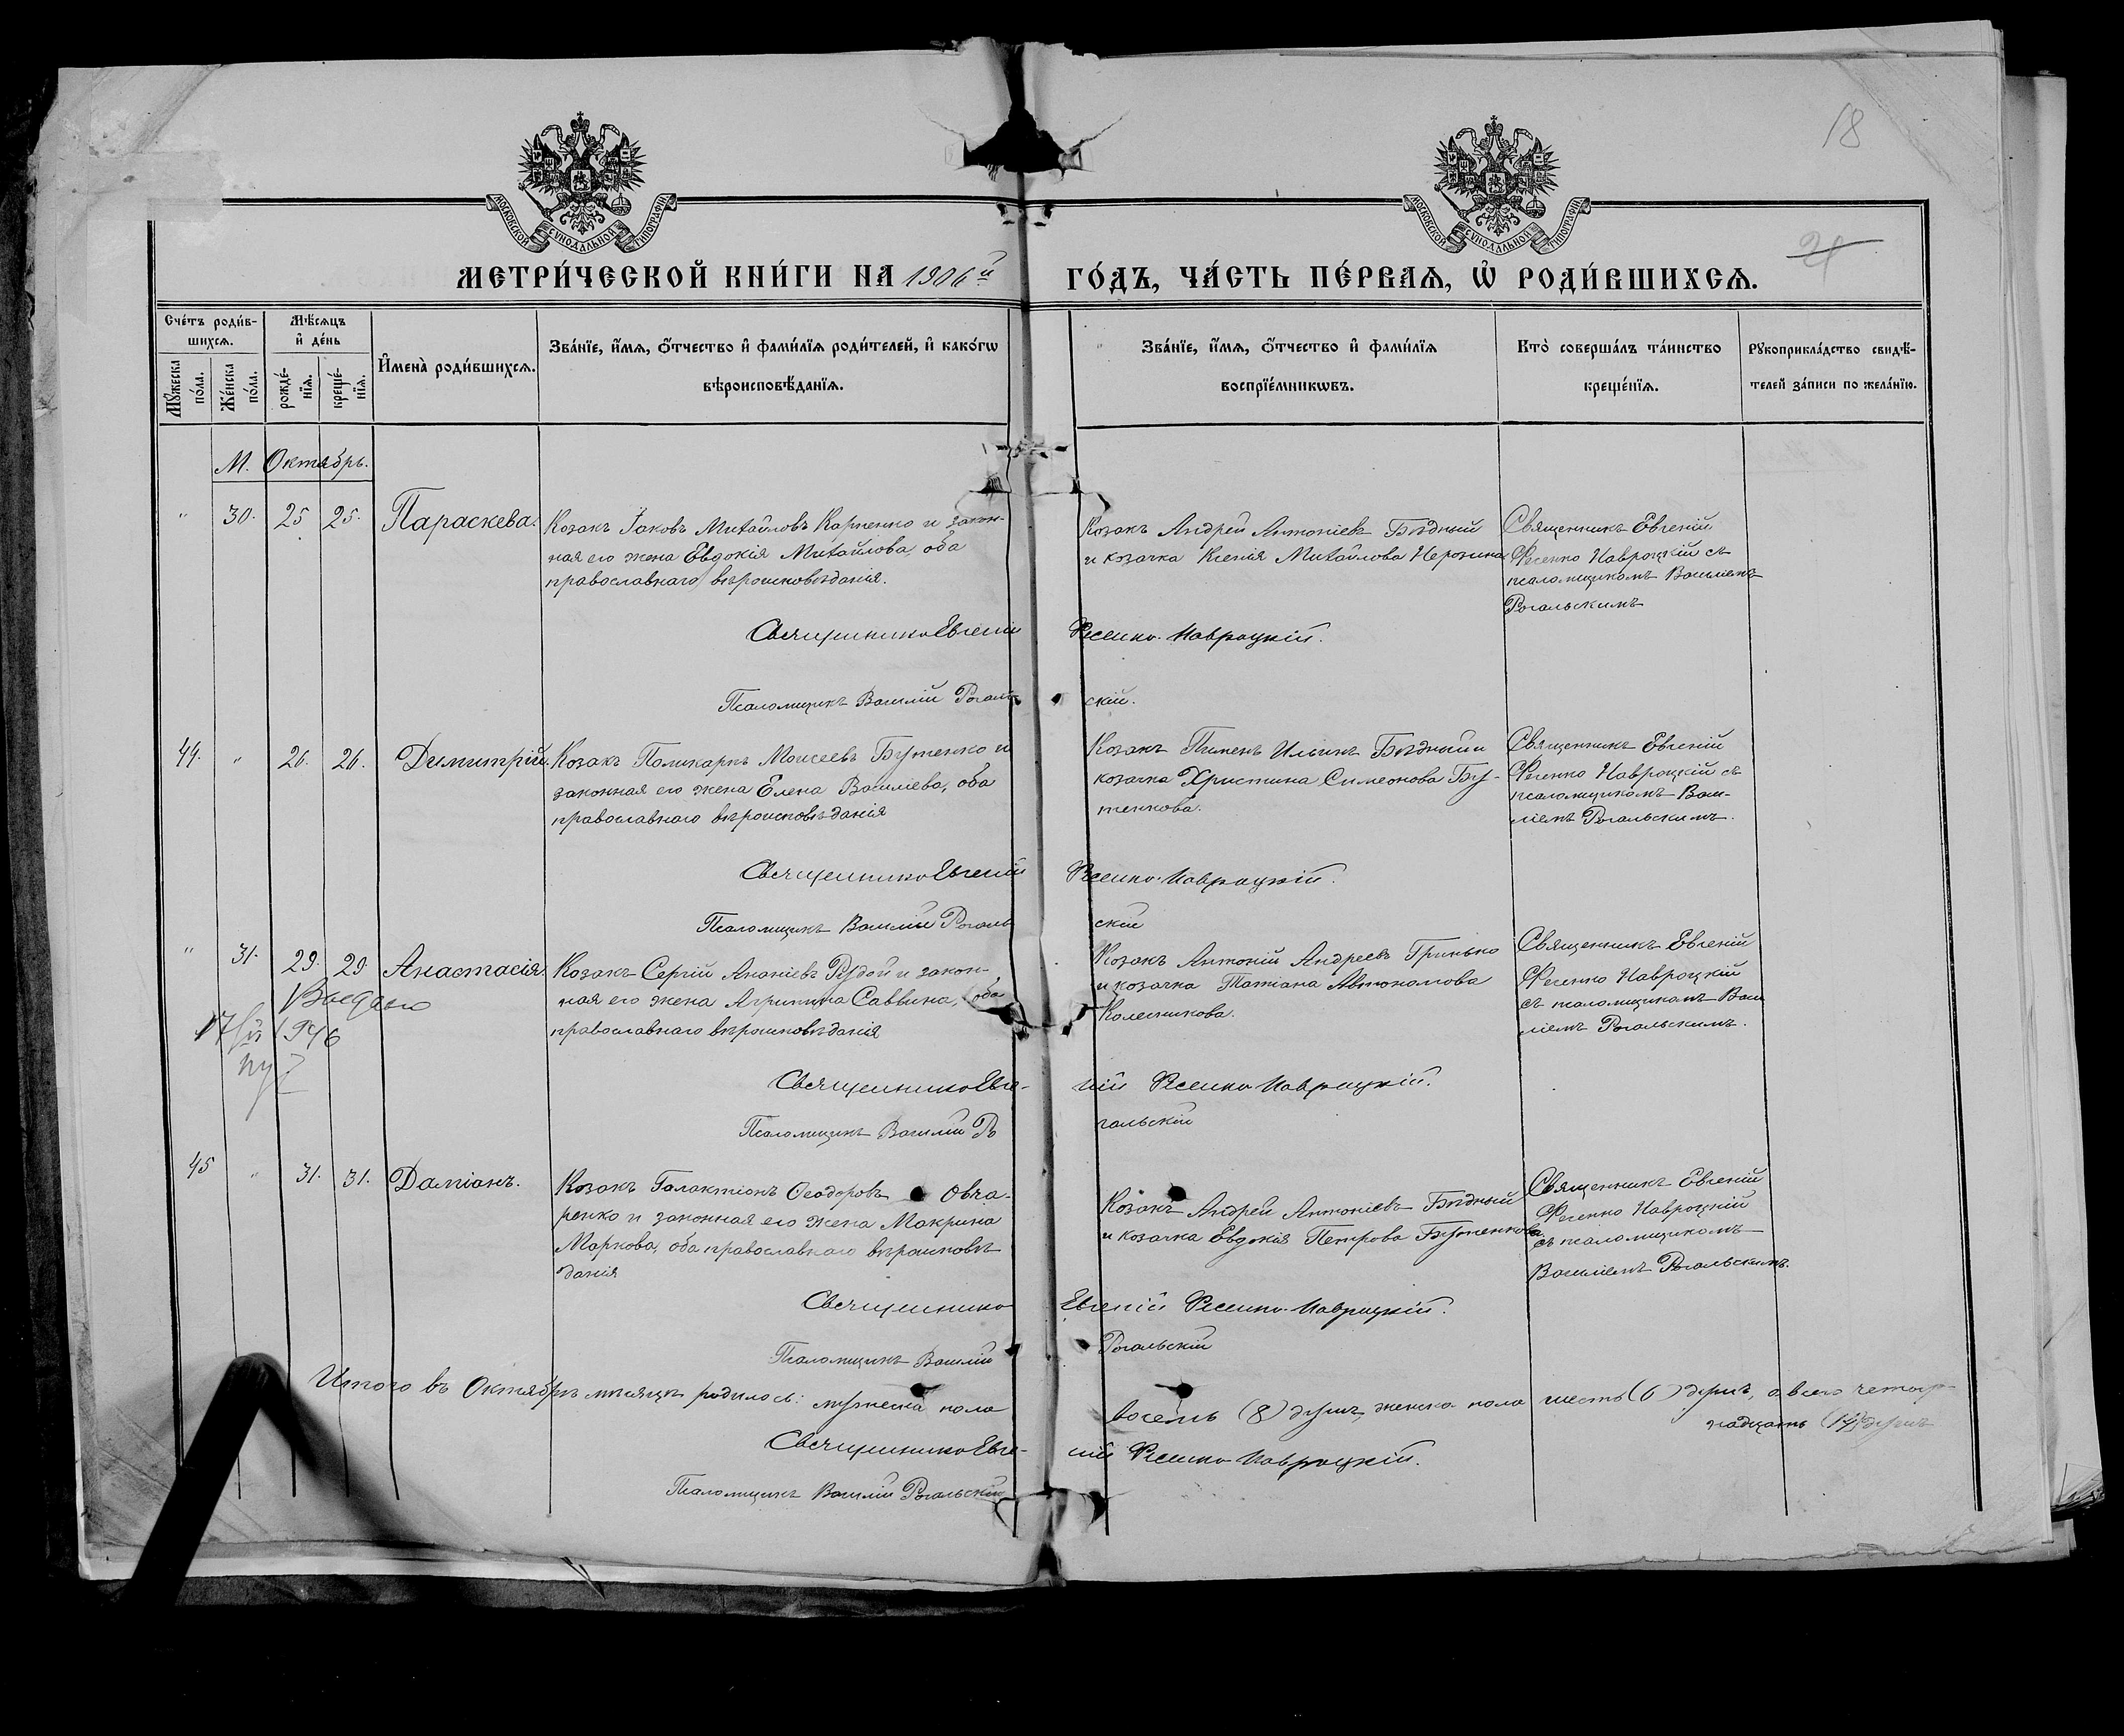 18
МОСКОВСКОЙ СУНОДАЛЬНОЙ ТИПОГРАФІИ
МОСКОВСКОЙ СУНОДАЛЬНОЙ ТИПОГРАФІИ
МЕТРИ́ЧЕСКОЙ КНИ́ГИ НА 1906й ГО́ДЪ, ЧА́СТЬ ПЕ́РВАѦ, Ѡ҆ РОДИ́ВШИХСѦ.
Сче́тъ роди́в-
шихсѧ.
Мꙋ́жеска по́ла.
Же́нска по́ла.
Мѣ́сѧцъ и҆ де́нь
рожде́-нїѧ.
креще́-нїѧ.
И҆мена̀ роди́вшихсѧ.
Зва́нїе, и҆́мѧ, ѻ҆́тчество и҆ фами́лїѧ роди́телей, и҆ како́гѡ
вѣроисповѣ́данїѧ.
Зва́нїе, и҆́мѧ, ѻ҆́тчество и҆ фами́лїѧ
воспрїе́мникѡвъ.
Кто̀ соверша́лъ та́инство
креще́нїѧ.
Рꙋкоприкла́дство свидѣ́-
телей за́писи по жела́нїю.
М. Октябрь.
" 30. 25 25. Параскева.
Козакъ Іаковъ Михайловъ Карпенко и закон-
ная его жена Евдокія Михайлова, оба
православнаго вѣроисповѣданія.
Козакъ Андрей Антоніевъ Бѣдный
и козачка Ксенія Михайлова
Священникъ Евгеній
Фесенко Навроцкій съ
псаломщикомъ Василіемъ
Рогальскимъ
Священникъ Евгеній Фесенко-Навроцкій.
Псаломщикъ Василій Рогальскій.
44. " 26. 26. Димитрій.
Козакъ Поликарпъ Моисеевъ Бутенко и
законная его жена Елена Василіева, оба
православнаго вѣроисповѣданія
Козакъ Пименъ Ильинъ Бѣдный и
козачка Христина Симеонова Бу-
тенкова.
Священникъ Евгеній
Фесенко Навроцкій съ
псаломщикомъ Васи-
ліемъ Рогальскимъ.
Священникъ Евгеній Фесенко-Навроцкій.
Псаломщикъ Василій Рогальскій
" 31. 29. 29. Анастасія.
Козакъ Сергій Ананіевъ Рудой и закон-
ная его жена Агрипина Саввина, оба
православнаго вѣроисповѣданія
Козакъ Антоній Андреевъ Гринько
и козачка Татіана Автономова
Колесникова.
Священникъ Евгеній
Фесенко Навроцкій
съ псаломщикомъ Васи
ліемъ Рогальскимъ.
1946
Священникъ Евгеній Фесенко-Навроцкій.
Псаломщикъ Василій Рогальскій
45 " 31. 31. Даміанъ.
Козакъ Галактіонъ Ѳеодоровъ Овча-
ренко и законная его жена Макрина
Маркова, оба православнаго вѣроисповѣ
данія
Козакъ Андрей Антоніевъ Бѣдный
и козачка Евдокія Петрова Бутенкова
Священникъ Евгеній
Фесенко Навроцкій
съ псаломщикомъ
Василіемъ Рогальскимъ.
Священникъ Евгеній Фесенко-Навроцкій.
Псаломщикъ Василій Рогальскій
Итого въ Октябрѣ мѣсяцѣ родилось: мужеска пола восемь (8) душъ, женска пола шесть (6) душъ, а всего четыр
надцать (14) душъ
Священникъ Евгеній Фесенко-Навроцкій.
Псаломщикъ Василій Рогальскій